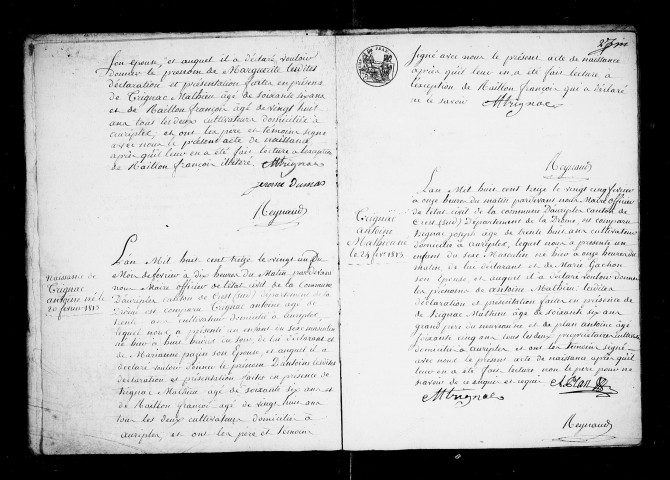 Son épouse, et auquel il a déclaré vouloir
donner le prénom de Marguerite lesdites
déclaration et présentation faites en présence
de Trignac Mathieu âgé de soixante six ans
et de Maillon françois âgé de vingt huit
ans tous les deux cultivateurs domiciliés à
auriples, et ont les père et témoin signé
avec nous le présent acte de naissance
après qu'il leur en a été fait lecture a l'exception
de Maillon françois illitéré. MTrignac
jerome Dumas
Reynaud
Naissance de
Trignac
antoine né le
20 fevrier 1813
L'an Mil huit cent treize le vingt un du
Mois de fevrier à dix heures du Matin pardevant
nous Maire officier de l'état civil de la Commune
D'auriples canton de Crest (sud) Département de la
Drome est comparu Trignac antoine âgé de
trente ans cultivateur domicilié à auriples,
lequel nous a présenté un enfant du sexe masculin
né hier à huit heures du soir de lui déclarant et
de Marianne son épouse, et auquel il a
déclaré vouloir donner le prénom D'antoine lesdites
déclaration et présentation faites en présence de
Trignac Mathieu âgé de soixante six ans et de
Maillon françois âgé de vingt huit ans
tous les deux cultivateurs domiciliés à
auriples, et ont les père et témoin
signé avec nous le présent acte de naissance
après qu'il leur en a été fait lecture a
l'exception de Maillon françois qui a déclaré
ne le savoir MTrignac
Reynaud
Trignac
antoine
Mathieu né
le 24 fer 1813
L'an Mil huit cent treize le vingt cinq fevrier
à onze heures du matin pardevant nous Maire officier
de l'état civil de la commune D'auriples canton de
Crest (sud) Département de la Drome, est comparu
Trignac joseph âgé de trente huit ans cultivateur
domicilié à auriples, lequel nous a présenté un
enfant du sexe Masculin né hier à onze heures du
matin de lui déclarant et de Marie Gachon
son épouse, et auquel il a déclaré vouloir donner
les prénoms de antoine Mathieu, lesdites
déclaration et présentation faites en présence de
de Trignac Mathieu âgé de soixante six ans
grand père du nouveau né et de plan antoine âgé
soixante cinq ans tous les deux propriétaires cultivateurs
domiciliés à auriples et ont les témoins signé
avec nous le présent acte de naissance après qu'il
leur en a été fait lecture non le père pour ne
savoir de ce enquis et requis A Plan
MTrignac
Reynaud